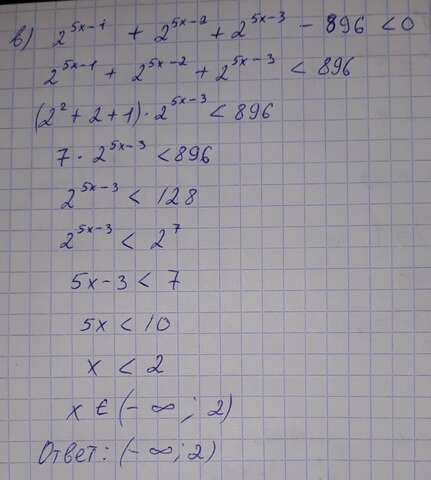 в) 2^{5x-1} + 2^{5x-2} + 2^{5x-3} - 896 < 0
2^{5x-1} + 2^{5x-2} + 2^{5x-3} < 896
(2^2 + 2 + 1) · 2^{5x-3} < 896
7 · 2^{5x-3} < 896
2^{5x-3} < 128
2^{5x-3} < 2^7
5x - 3 < 7
5x < 10
x < 2
x ∈ (-∞; 2)
Ответ: (-∞; 2)